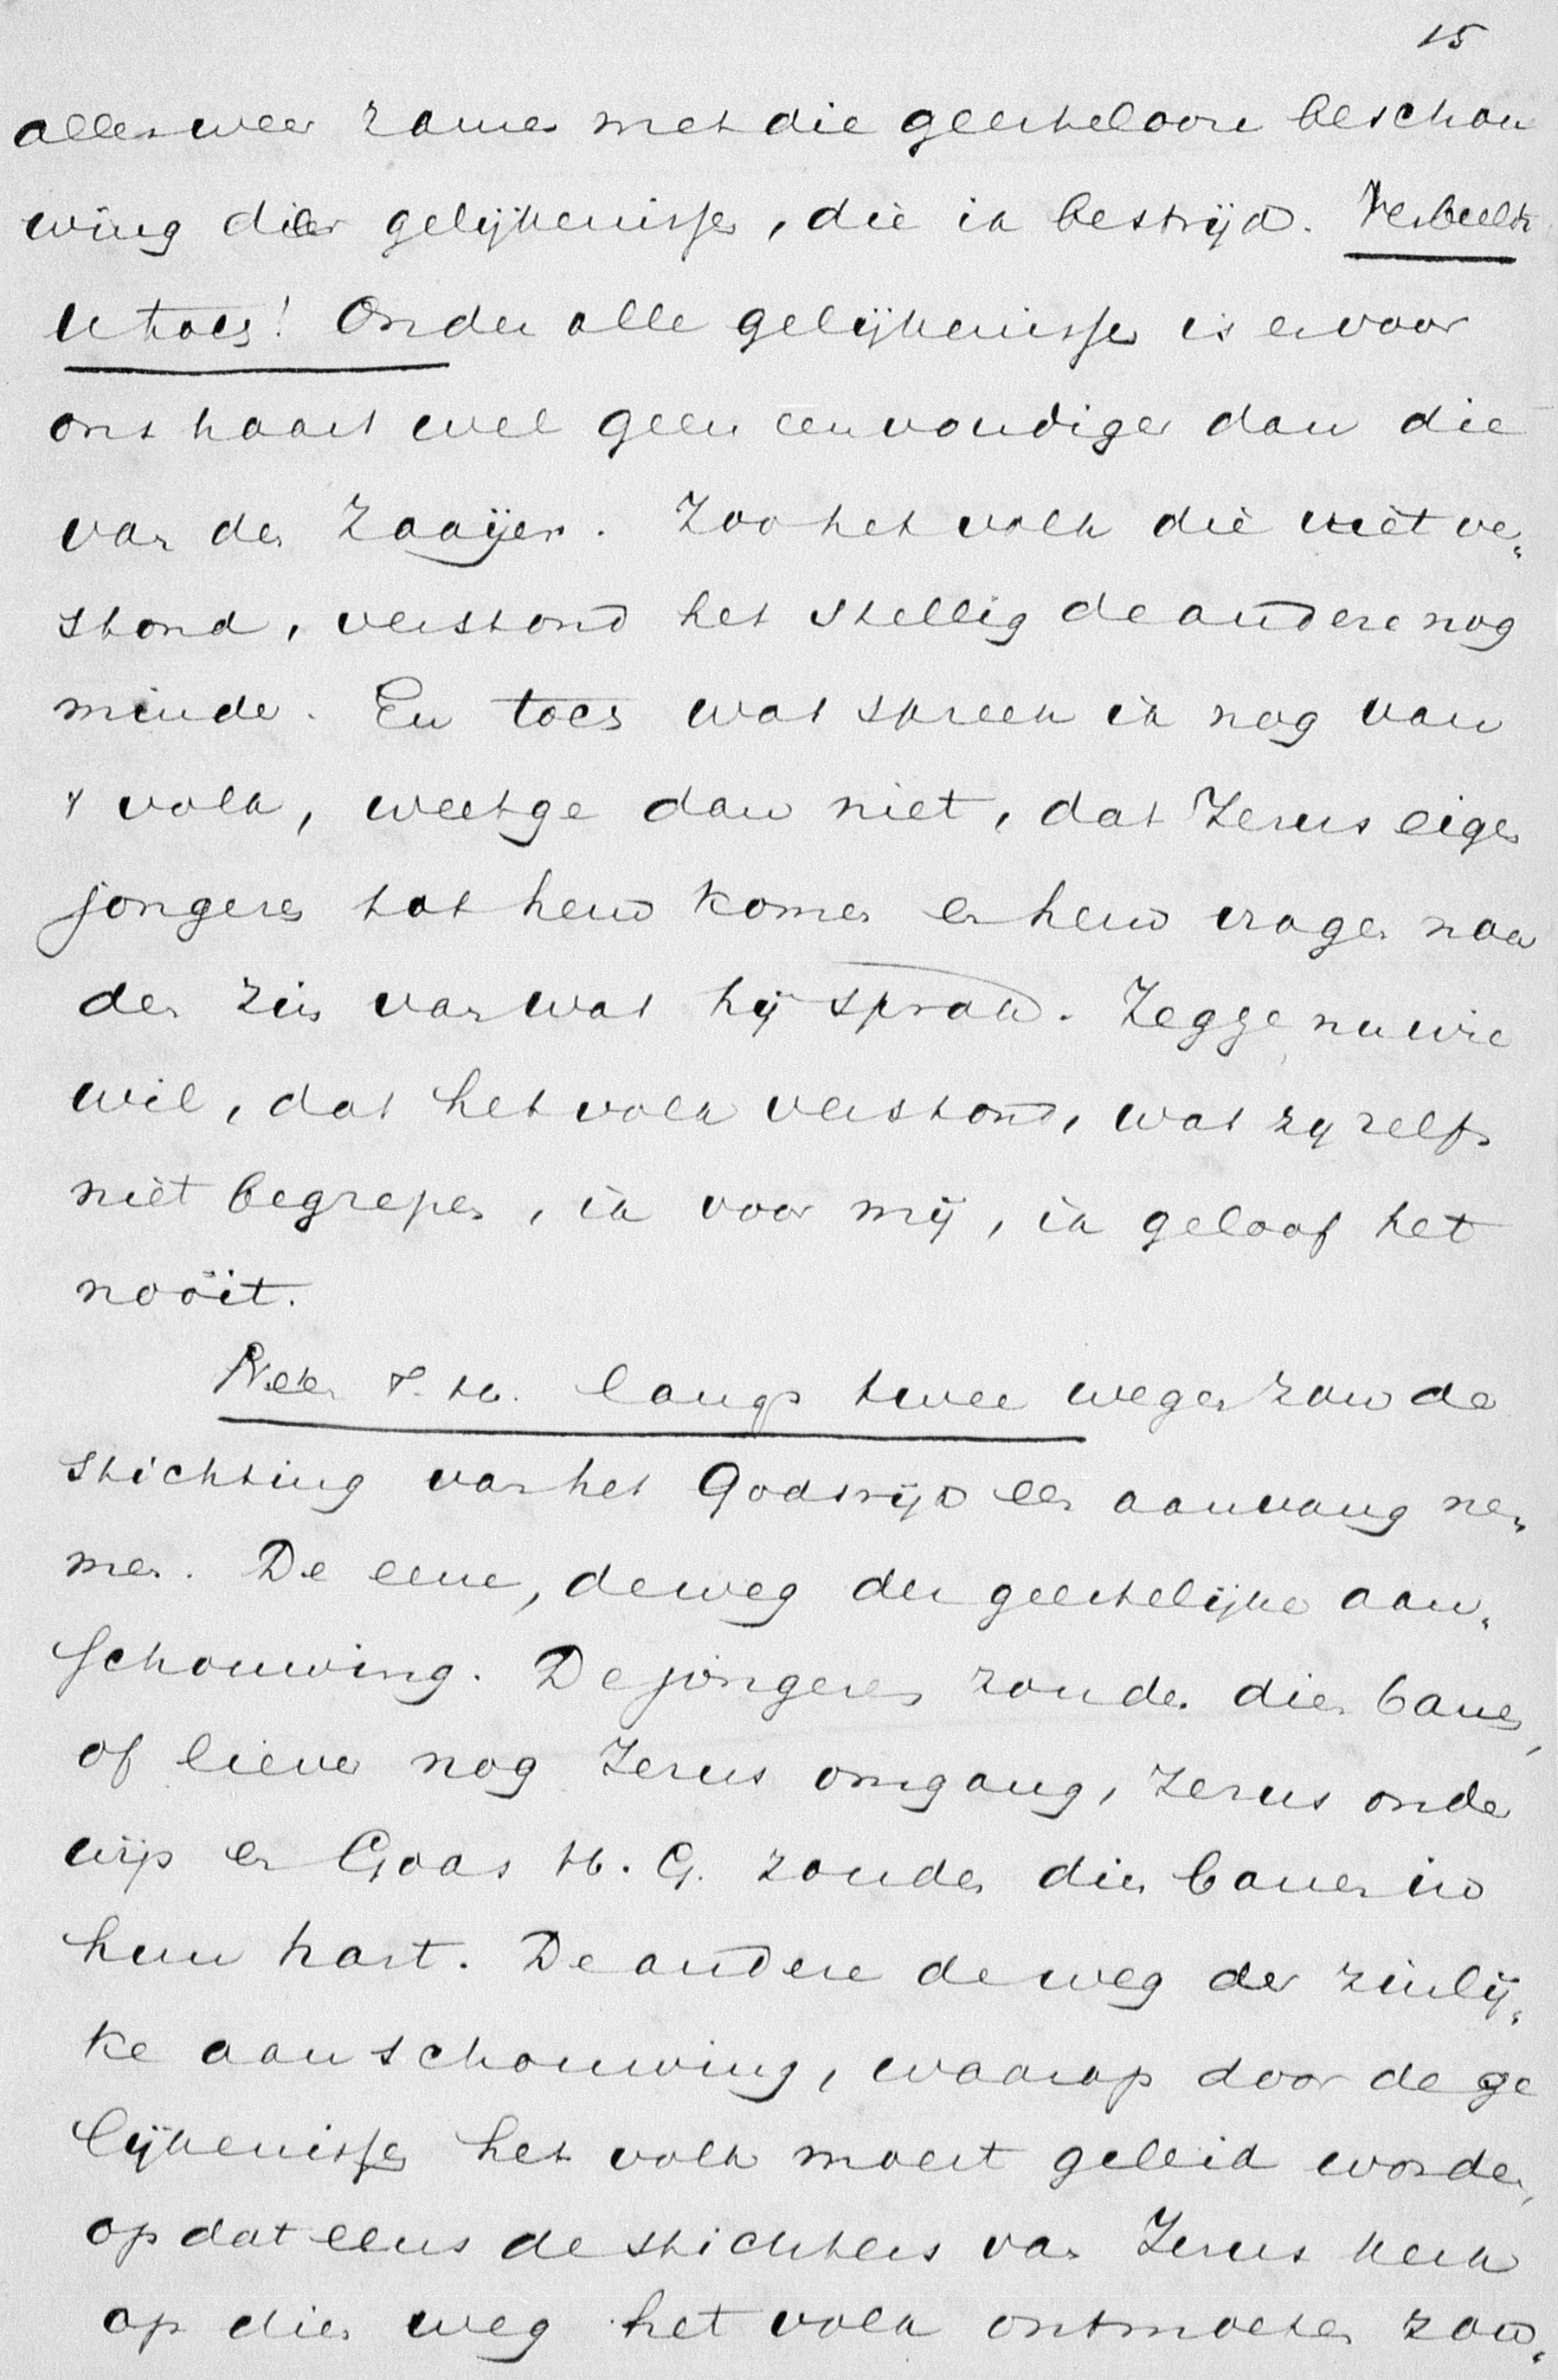 15
alles weer zamen met die geesteloore beschou
wing dier gelijkenissen, die ik bestrijd. Verbeeldt
u toch! Onder alle gelijkenissen is er voor
ons haast wel geen eenvoudiger dan die
van den Zaaijer. Zoo het volk die niet ver„
stond, verstond het stellig de andere nog
minder. En toch wat spreek ik nog van
't volk, weet ge dan niet, dat Jezus eigen
jongeren tot hem komen en hem vragen naar
den zin van wat hij sprak. Zegge nu wie
wil, dat het volk verstond, wat zij zelfs
niet begrepen, ik voor mij, ik geloof het
nooit.
Neen T. H. langs twee wegen zou de
stichting van het Godsrijk een aanvang ne„
men. De eene, de weg der geestelijke aan„
schouwing. De jongeren zouden dien banen,
of liever nog Jezus omgang, Jezus onder
wijs en Gods H. G. zouden dien banen in
hun hart. De andere de weg der zinlij„
ke aanschouwing, waarop door de ge
lijkenissen het volk moest geleid worden,
opdat eens de stichters van Jezus kerk
op dien weg het volk ontmoeten zou„